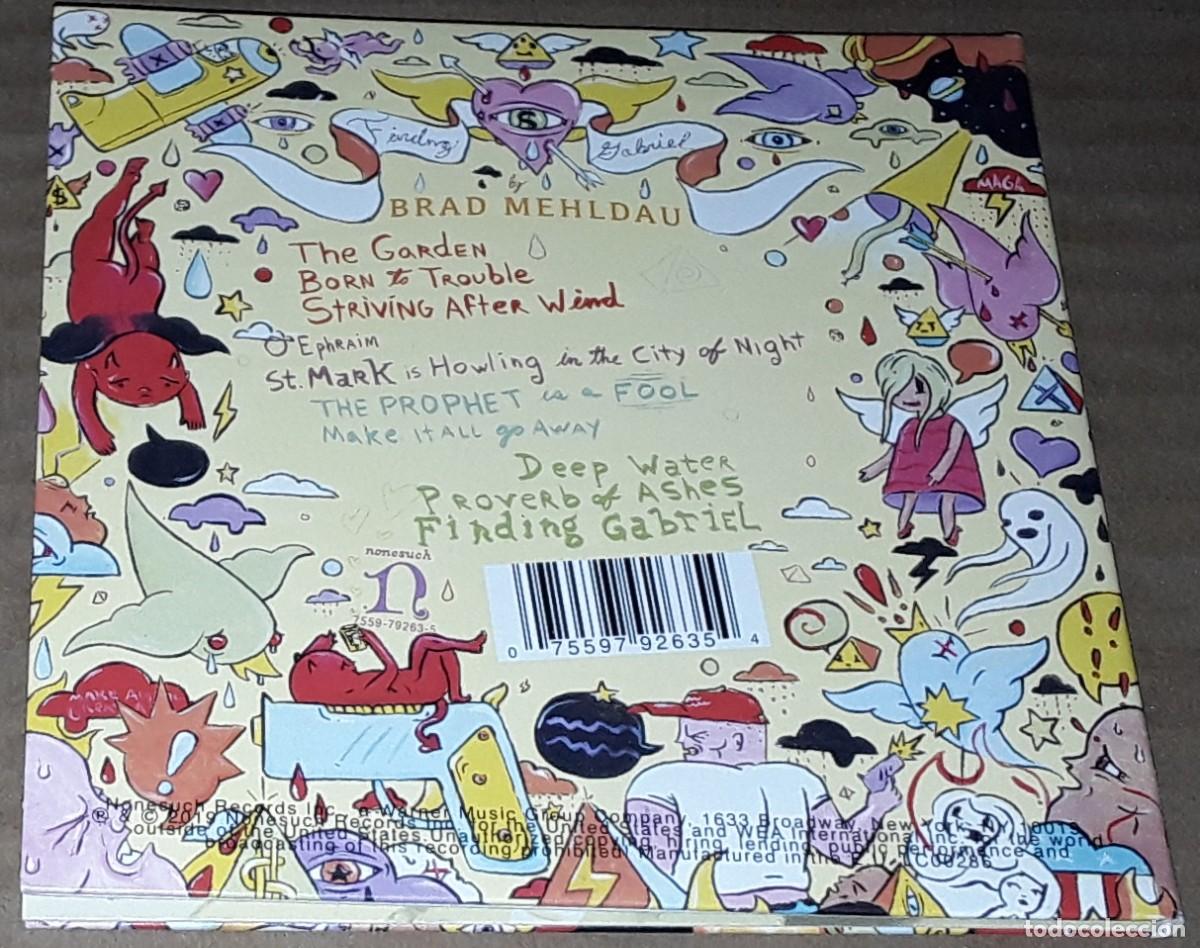 Finding Gabriel
by
BRAD MEHLDAU
MAGA
The Garden
Born to Trouble
Striving After Wind
O Ephraim
St. Mark is Howling in the City of Night
THE PROPHET is a FOOL
Make it All go Away
Deep Water
Proverb of Ashes
Finding Gabriel
nonesuch
n
7559-79263-5
0 75597 92635 4
MAKE A
Nonesuch Records Inc., a Warner Music Group Company, 1633 Broadway, New York, NY 10019.
℗ & © 2019 Nonesuch Records Inc. for the United States and WEA International Inc. for the world
outside of the United States. Unauthorized copying, hiring, lending, public performance and
broadcasting of this recording prohibited. Manufactured in the E.U. LC00286
todocoleccion